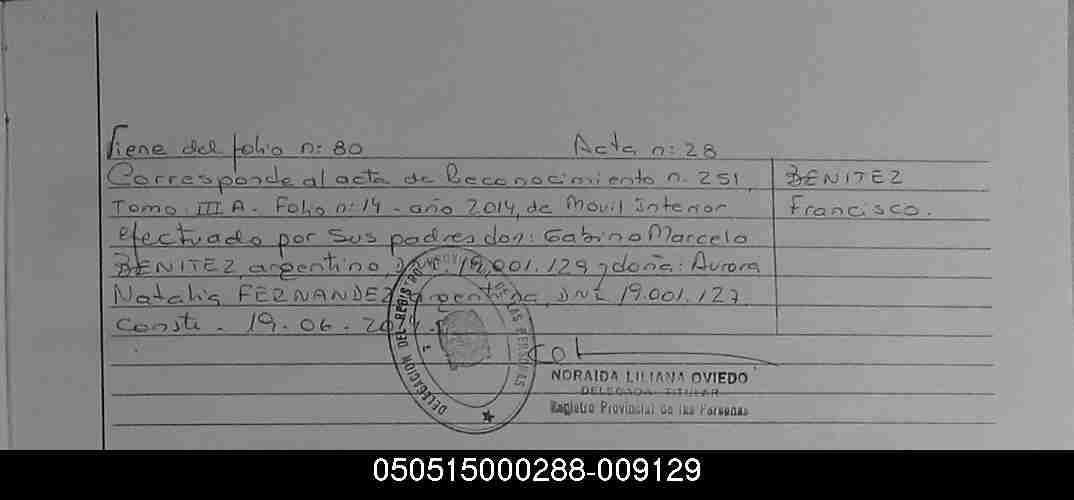 Viene del folio n: 80 Acta n: 28
Corresponde al acta de Reconocimiento n. 251, BENITEZ
Tomo: III A. Folio n: 14 - año 2014, de Movil Interior Francisco.
efectuado por sus padres don: Gabino Marcelo
BENITEZ, argentino, 19.001.129 y doña: Aurora
Natalia FERNANDEZ, argentina, DNI 19.001.127.
Conste. 19.06.
DELEGACION DEL REGISTRO PROVINCIAL DE LAS PERSONAS
NORAIDA LILIANA OVIEDO
DELEGADA TITULAR
Registro Provincial de las Personas
050515000288-009129